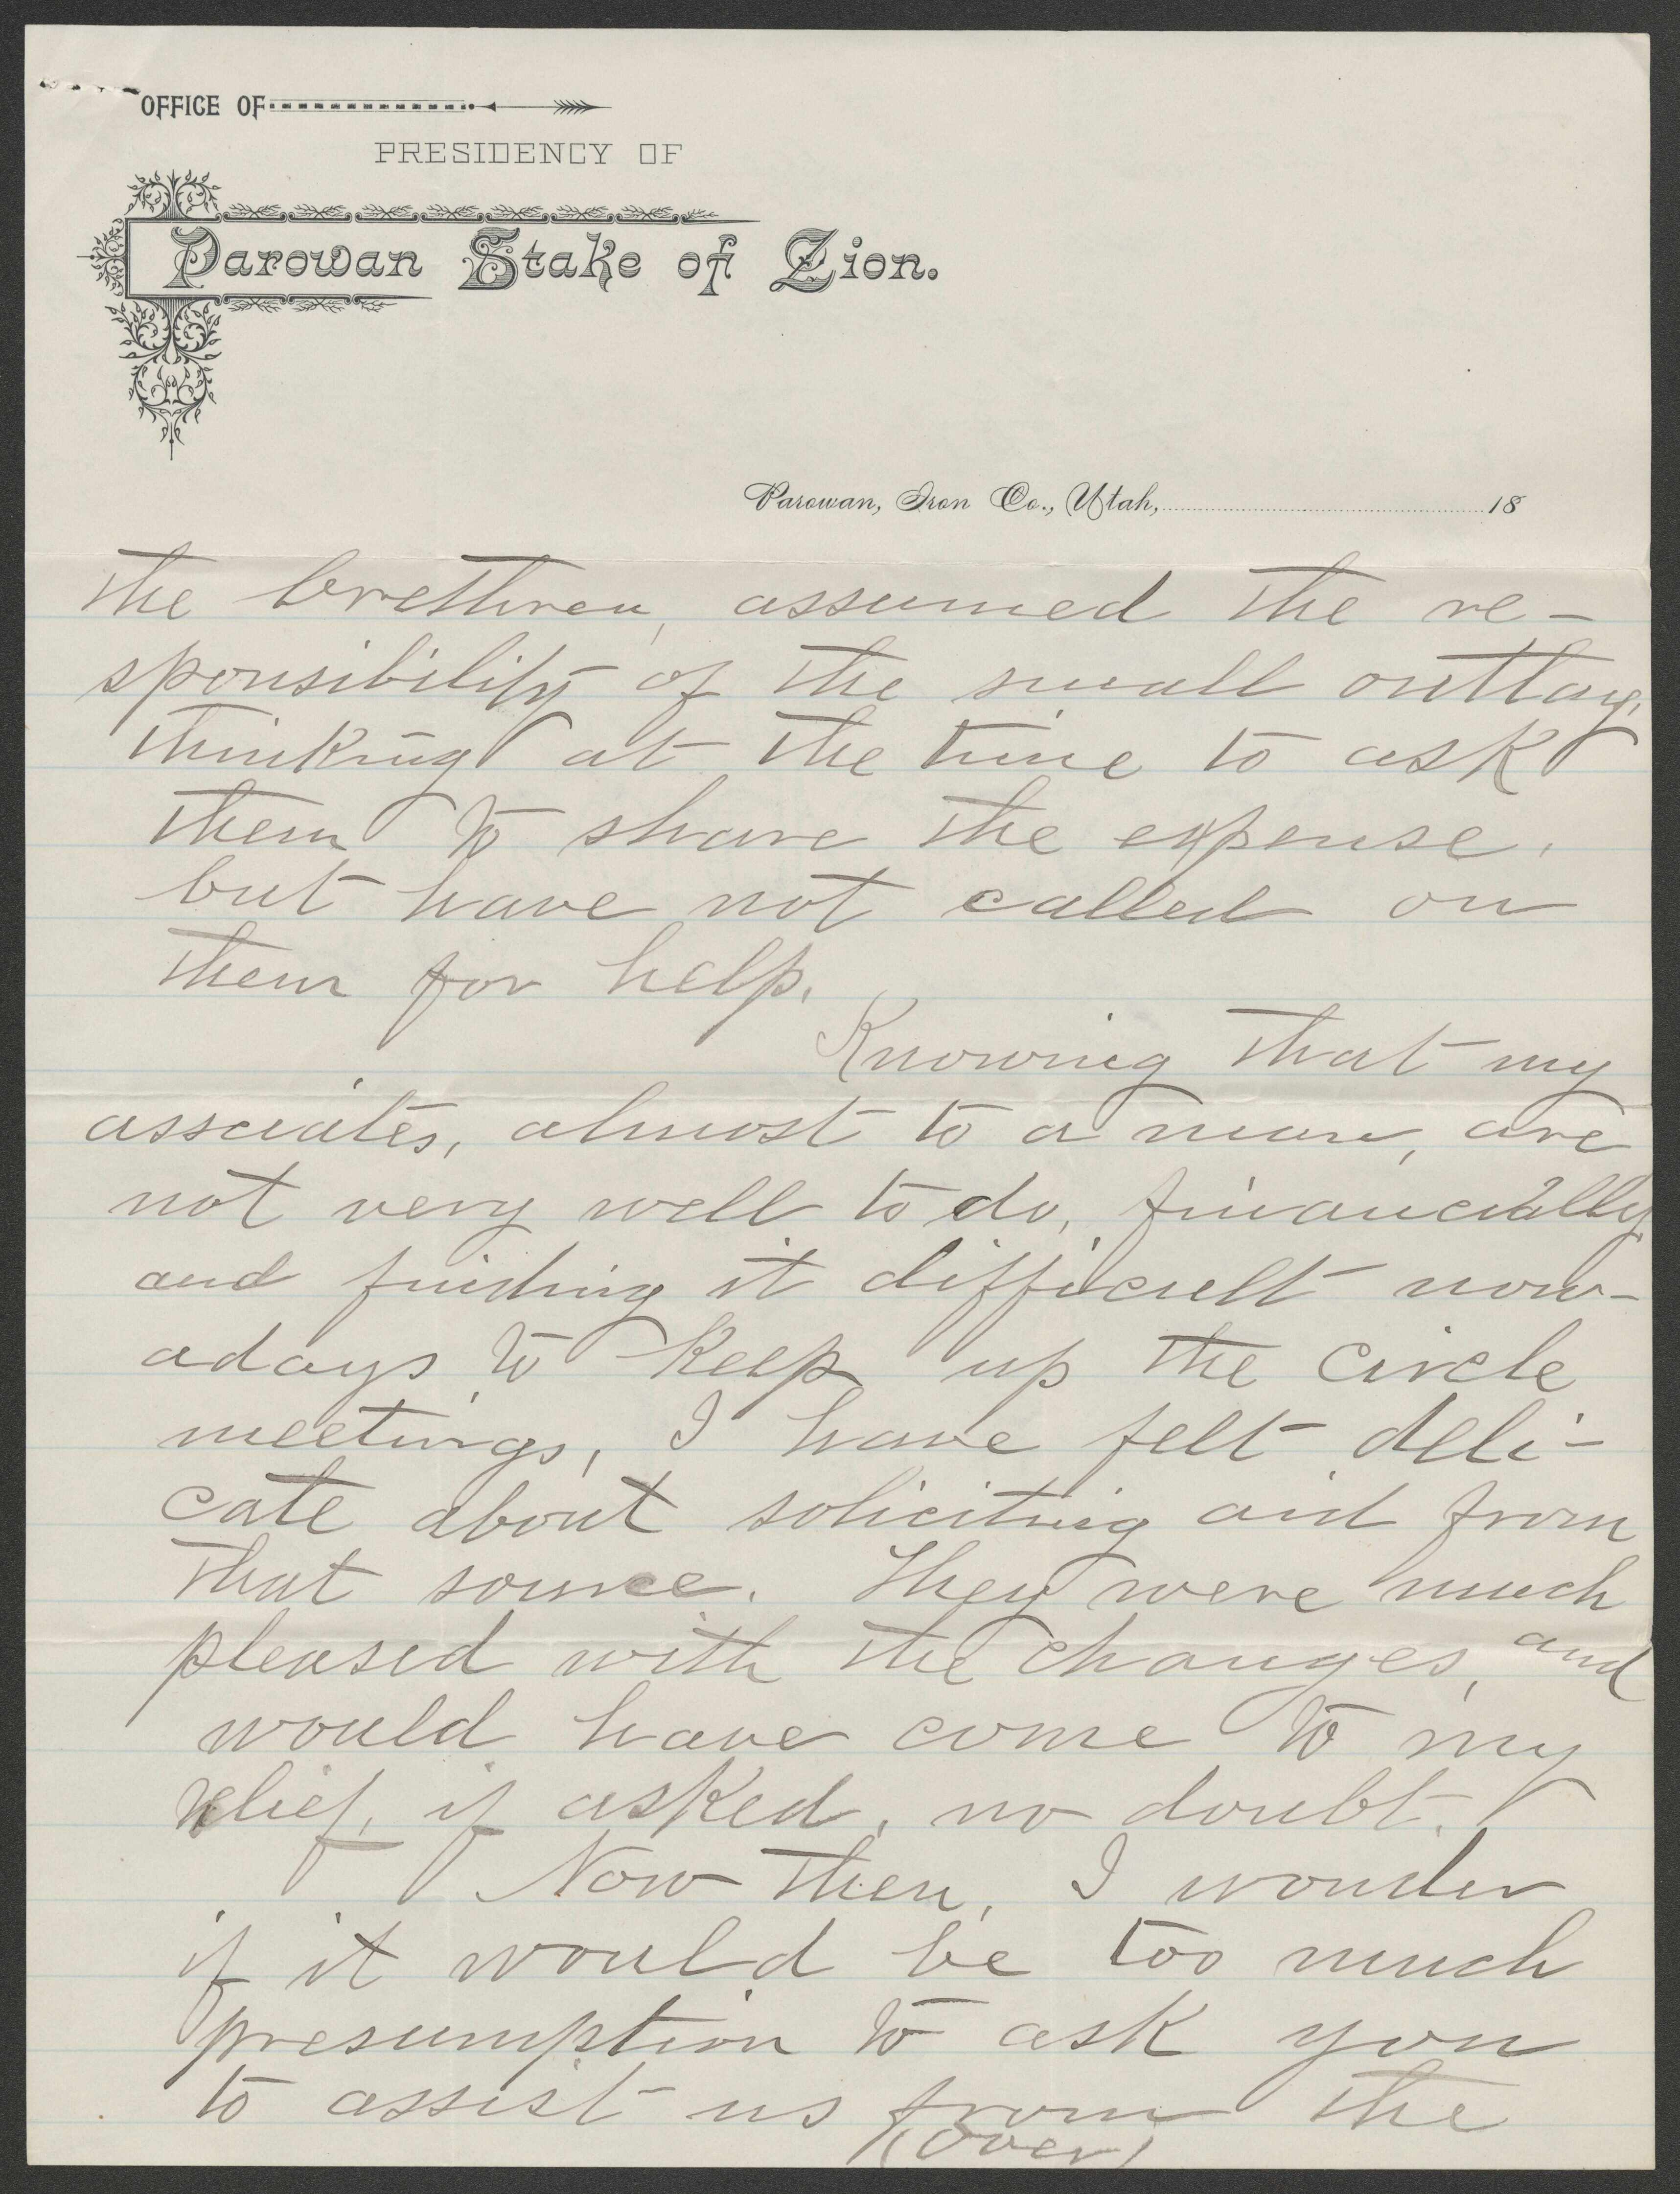 OFFICE OF
PRESIDENCY OF
Parowan Stake of Zion.
Parowan, Iron Co., Utah, 18
the brethren, assumed the re-
sponsibility of the small outlay,
thinking at the time to ask
them to share the expense,
but have not called on
them for help.
Knowing that my
associates, almost to a man, are
not very well to do, financially
and finding it difficult now-
adays to keep up the circle
meetings, I have felt deli-
cate about soliciting aid from
that source. They were much
pleased with the changes, and
would have come to my
relief, if asked, no doubt.
Now then, I wonder
if it would be too much
presumption to ask you
to assist us from the
(over)